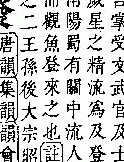 受文武官及
星之精流為及登
南陽蜀有關中流人
而觀魚登來之也註
之二王孫後大宗昭
唐韻集韻韻會